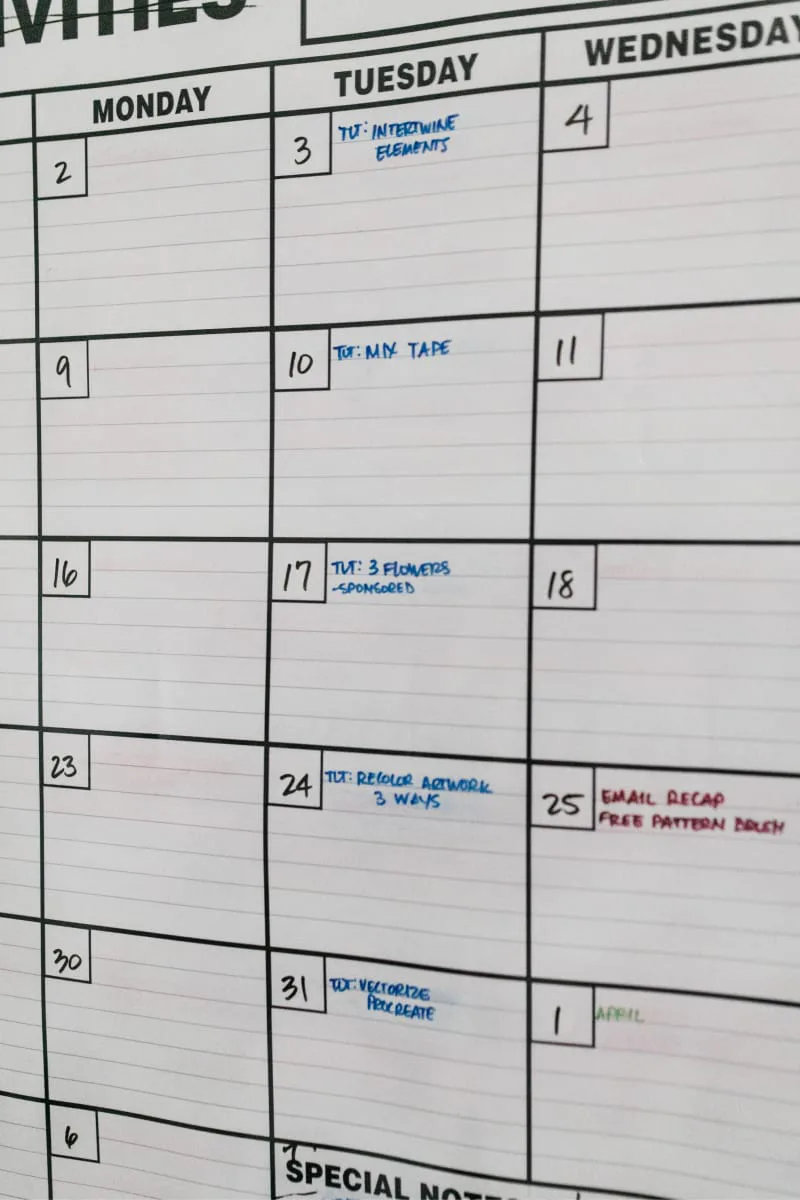 MONDAY
TUESDAY
WEDNESDAY
2
3
TUT: INTERTWINE
ELEMENTS
4
9
10
TUT: MIX TAPE
11
16
17
TUT: 3 FLOWERS
-SPONSORED
18
23
24
TUT: RECOLOR ARTWORK
3 WAYS
25
EMAIL RECAP
FREE PATTERN
30
31
TUT: VECTORIZE
PROCREATE
1
APRIL
6
SPECIAL